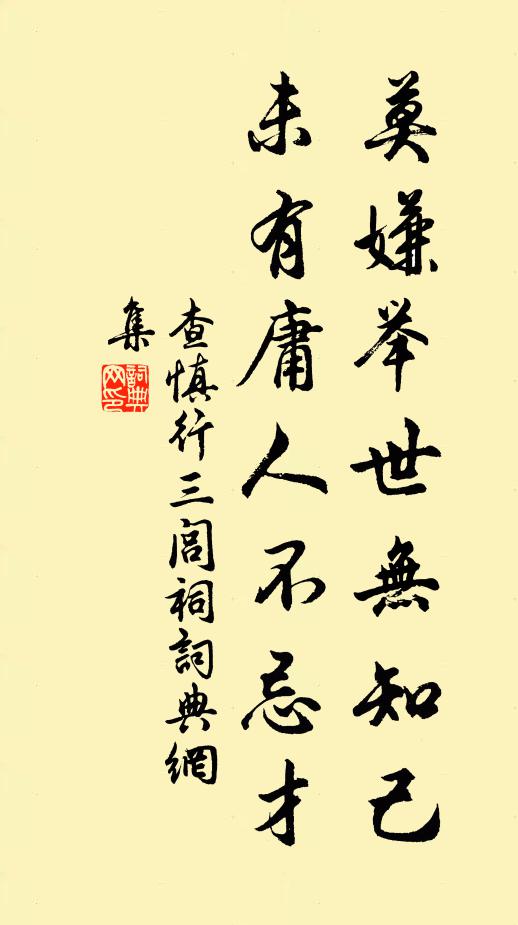 莫嫌举世無知己
未有庸人不忌才
查慎行三閭祠詞典網
集
詞典
网印